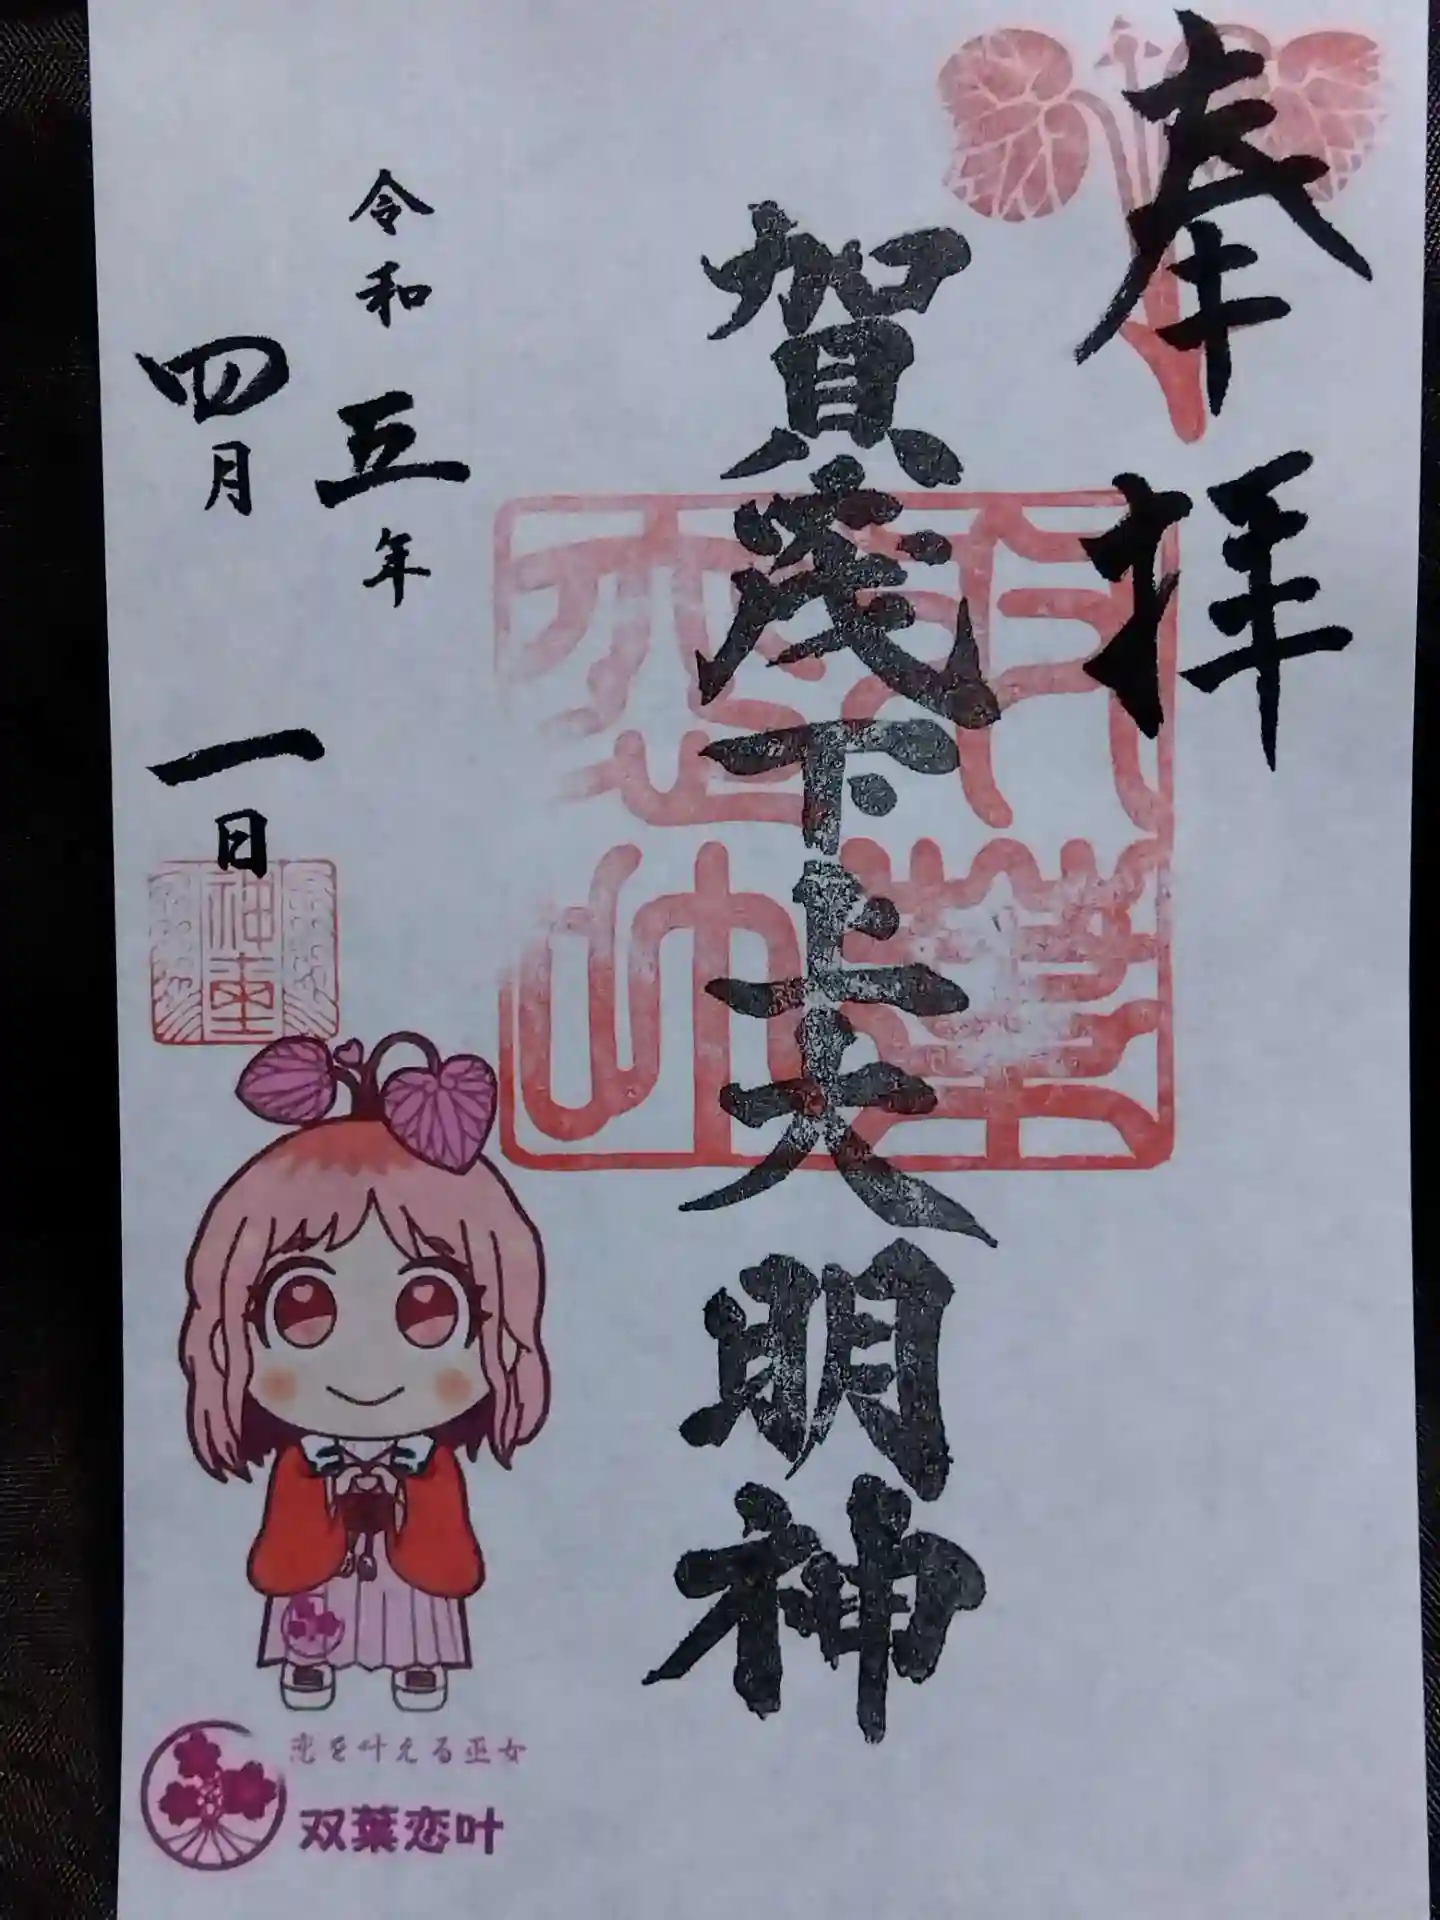 奉拝
賀茂下上大明神
令和五年
四月一日
恋を叶える巫女
双葉恋叶